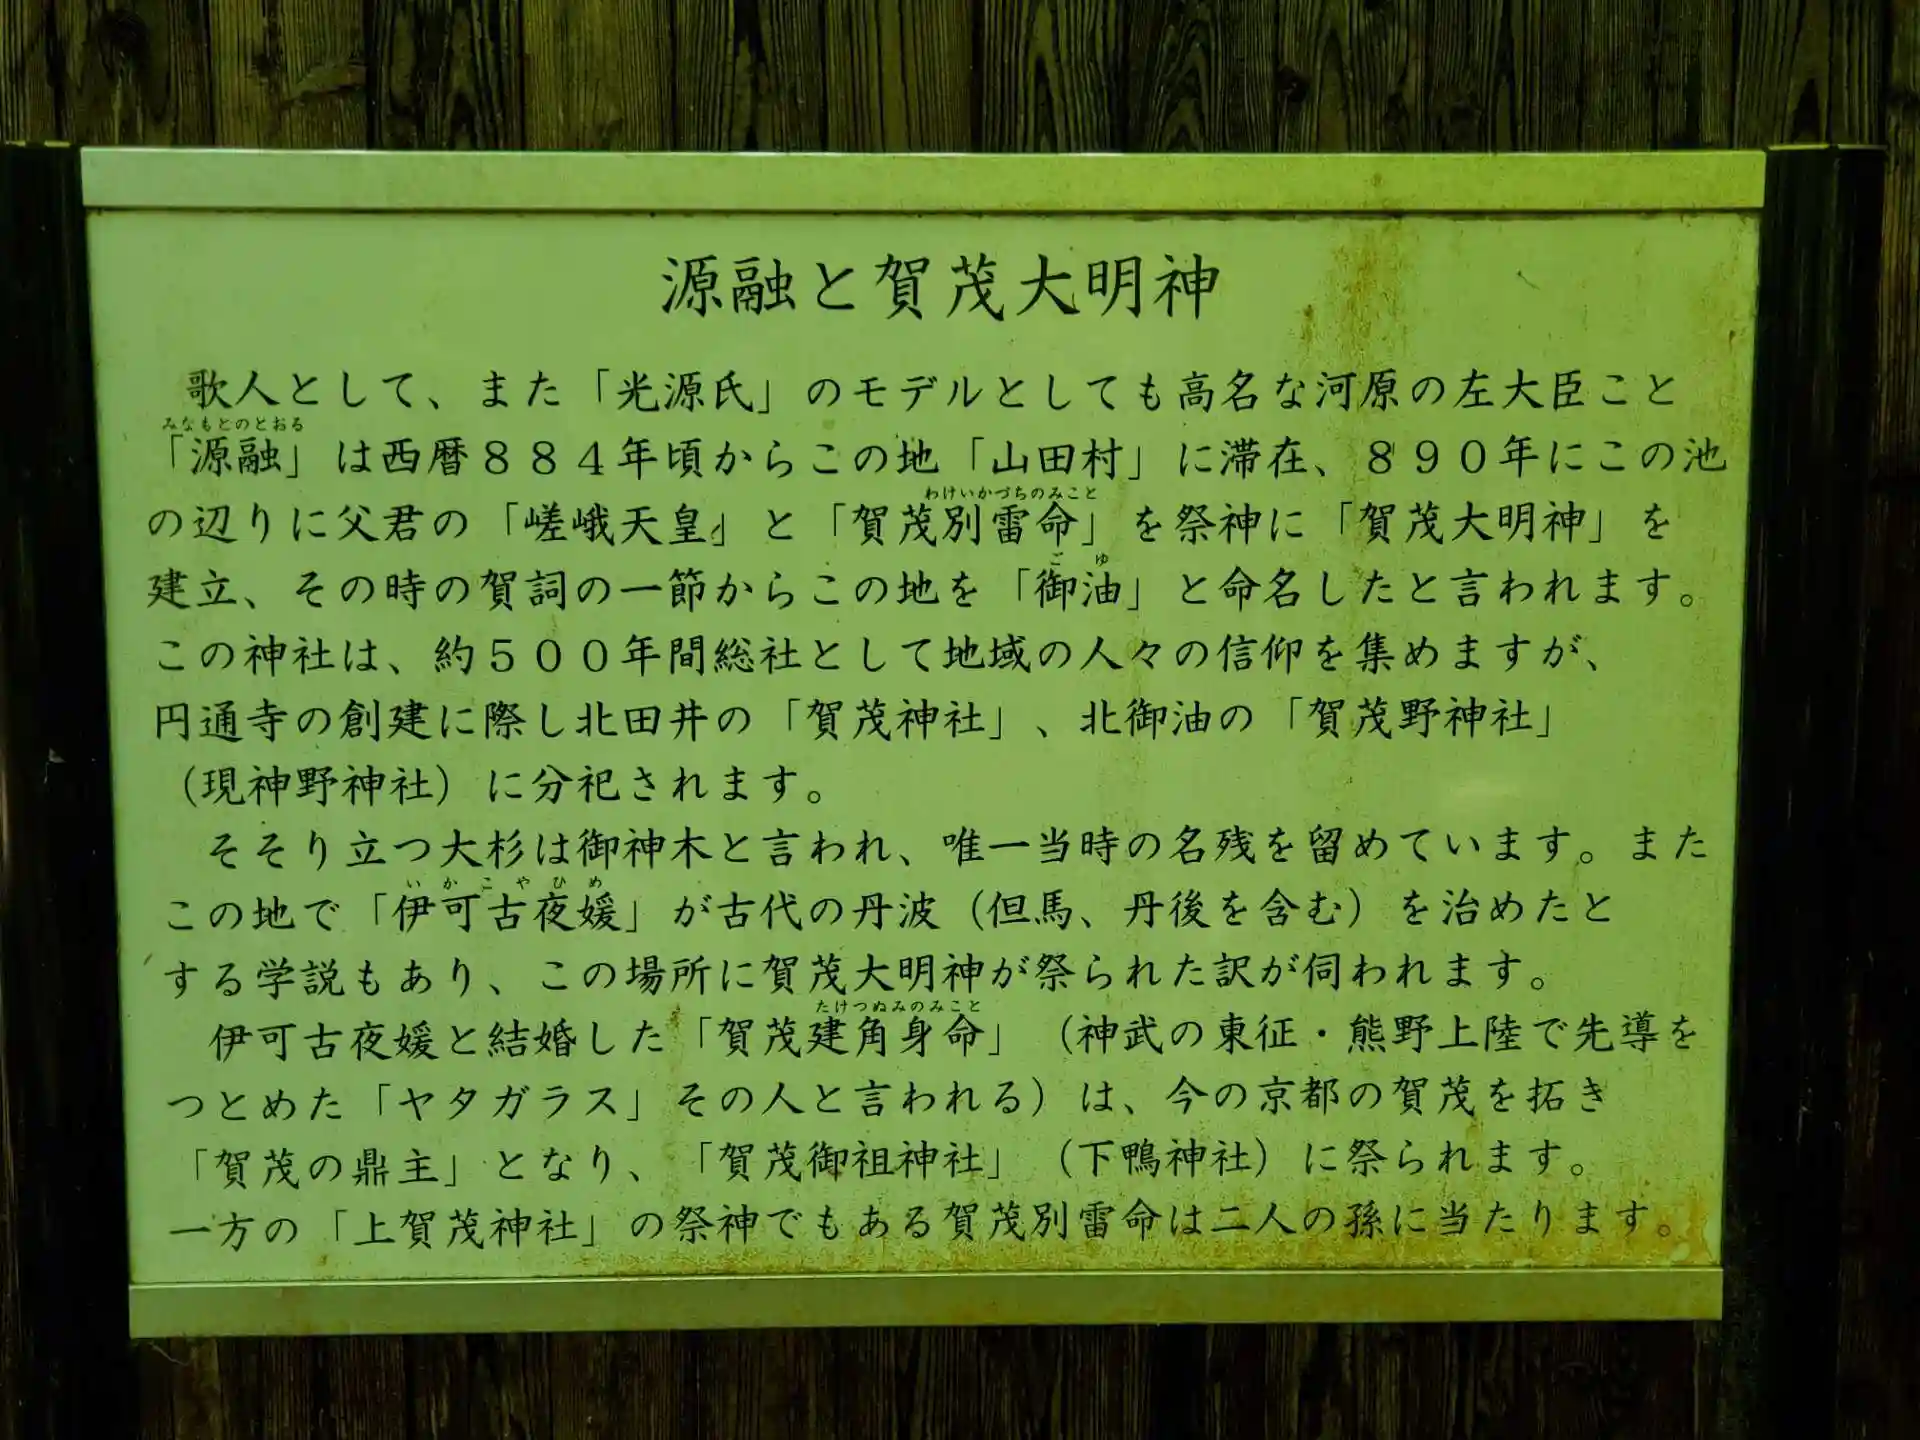 源融と賀茂大明神
歌人として、また「光源氏」のモデルとしても高名な河原の左大臣こと
みなもとのとおる
「源融」は西暦８８４年頃からこの地「山田村」に滞在、８９０年にこの池
わけいかづちのみこと
の辺りに父君の「嵯峨天皇」と「賀茂別雷命」を祭神に「賀茂大明神」を
ごゆ
建立、その時の賀詞の一節からこの地を「御油」と命名したと言われます。
この神社は、約５００年間総社として地域の人々の信仰を集めますが、
円通寺の創建に際し北田井の「賀茂神社」、北御油の「賀茂野神社」
（現神野神社）に分祀されます。
そそり立つ大杉は御神木と言われ、唯一当時の名残を留めています。また
いかこやひめ
この地で「伊可古夜媛」が古代の丹波（但馬、丹後を含む）を治めたと
する学説もあり、この場所に賀茂大明神が祭られた訳が伺われます。
たけつぬみのみこと
伊可古夜媛と結婚した「賀茂建角身命」（神武の東征・熊野上陸で先導を
つとめた「ヤタガラス」その人と言われる）は、今の京都の賀茂を拓き
「賀茂の鼎主」となり、「賀茂御祖神社」（下鴨神社）に祭られます。
一方の「上賀茂神社」の祭神でもある賀茂別雷命は二人の孫に当たります。